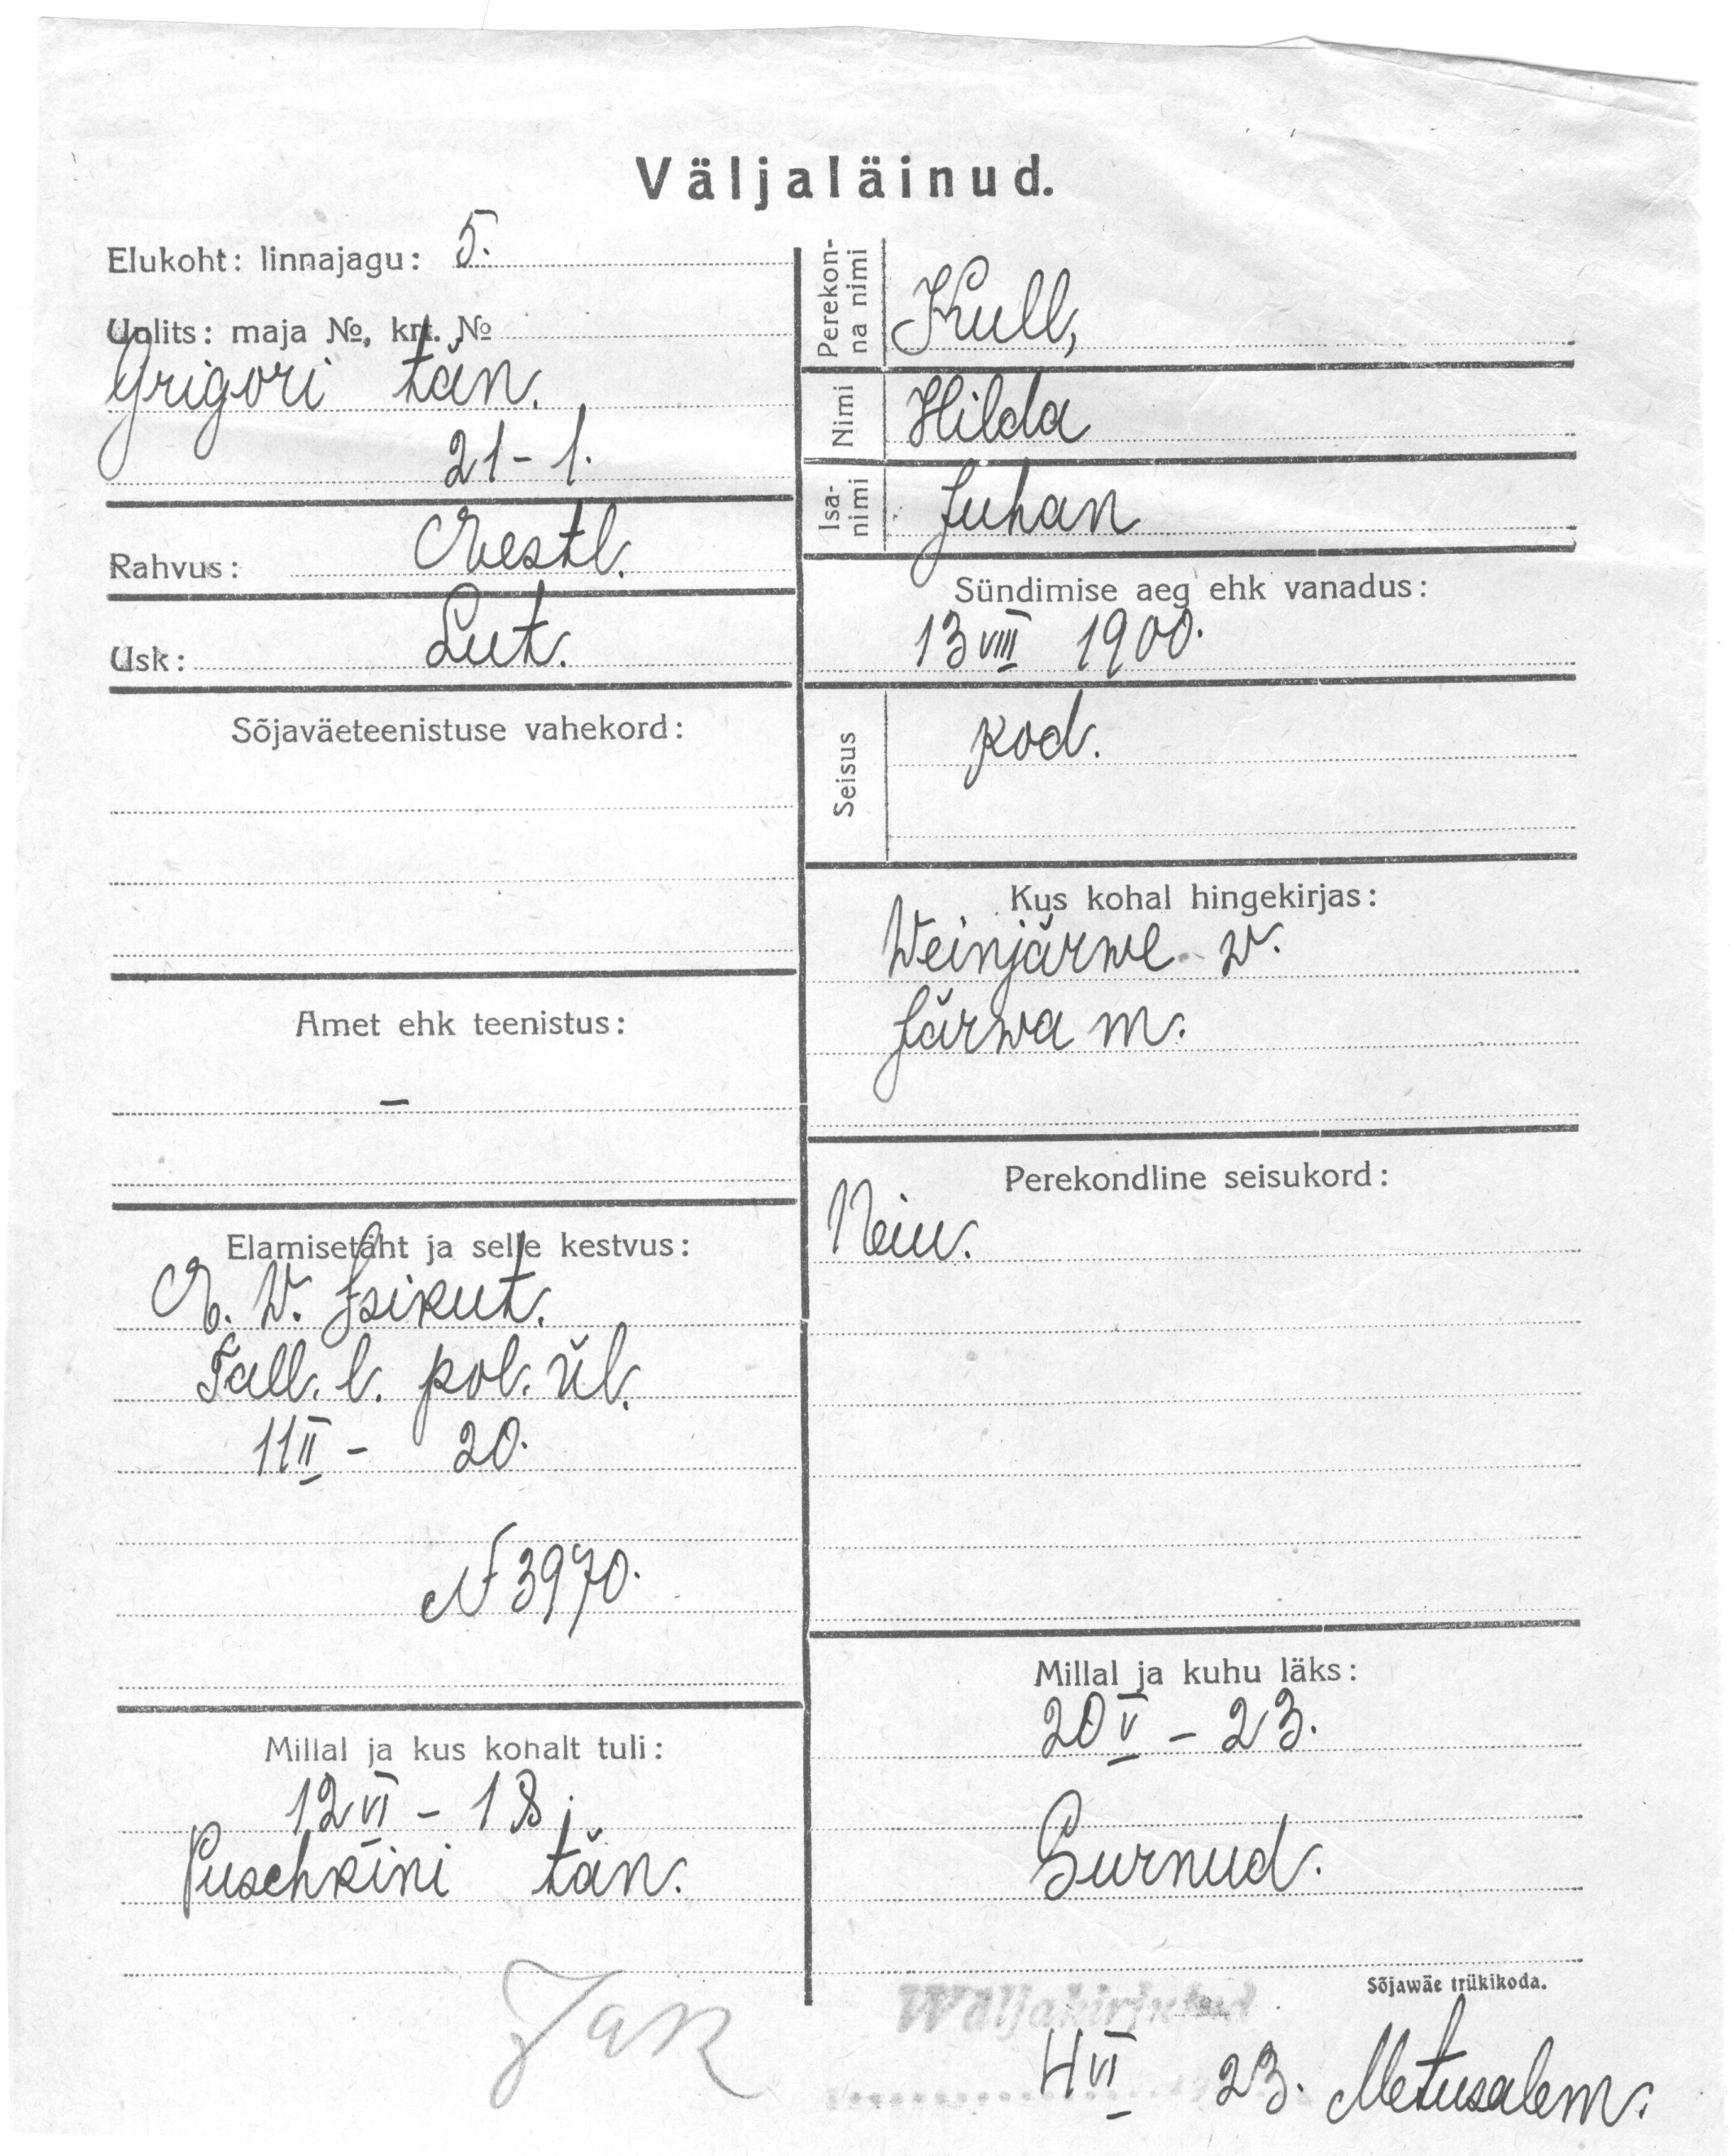 Väljaläinud.
Elukoht: linnajagu: 5.
Uulits: maja №, krt. №
Grigori tän.
21 - 1.
Rahvus: Eestl.
Usk: Lut.
Sõjaväeteenistuse vahekord:
Amet ehk teenistus:
–
Elamisetäht ja selle kestvus:
E. W. Isikut.
Tall. l. pol. ül.
11 II - 20.
N 3970.
Millal ja kus kohalt tuli:
12 VI - 18.
Puschkini tän.
Perekon-
na nimi
Kull,
Nimi Hilda
Isa-
nimi
Juhan
Sündimise aeg ehk vanadus:
13 VIII 1900.
Seisus kod.
Kus kohal hingekirjas:
Weinjärwe w.
Järwa m.
Perekondline seisukord:
Neiu.
Millal ja kuhu läks:
20 V - 23.
Surnud.
Sõjawäe trükikoda.
Jak
Wäljakirjutud
4 VI 23. Metusalem.